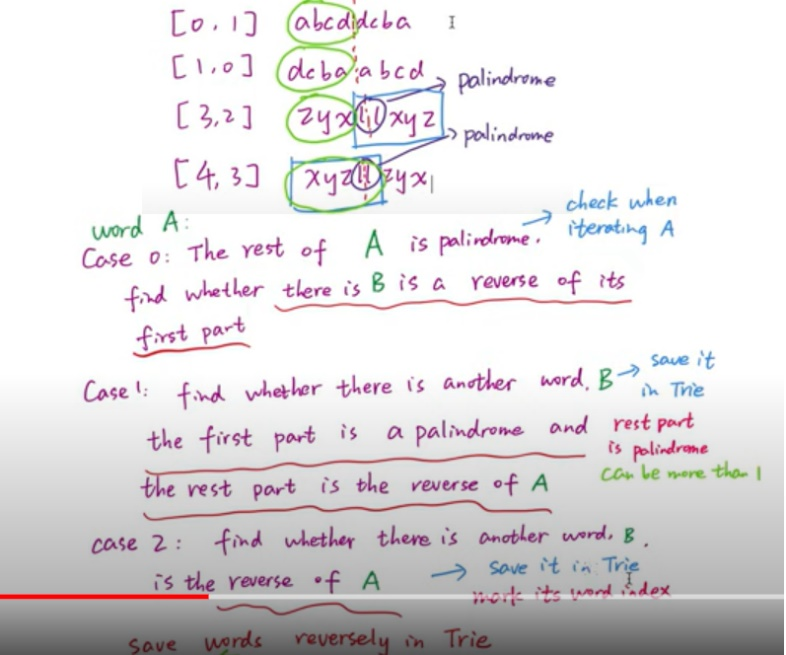 [0,1] abcddcba
[1,0] dcbaabcd
palindrome
[3,2] zyxllxyz
palindrome
[4,3] xyzllzyx
check when
iterating A
word A:
Case 0: The rest of A is palindrome.
find whether there is B is a reverse of its
first part
Case 1: find whether there is another word, B
save it
in Trie
the first part is a palindrome and
rest part
is palindrome
can be more than 1
the rest part is the reverse of A
case 2: find whether there is another word, B.
is the reverse of A
save it in Trie
mark its word index
save words reversely in Trie